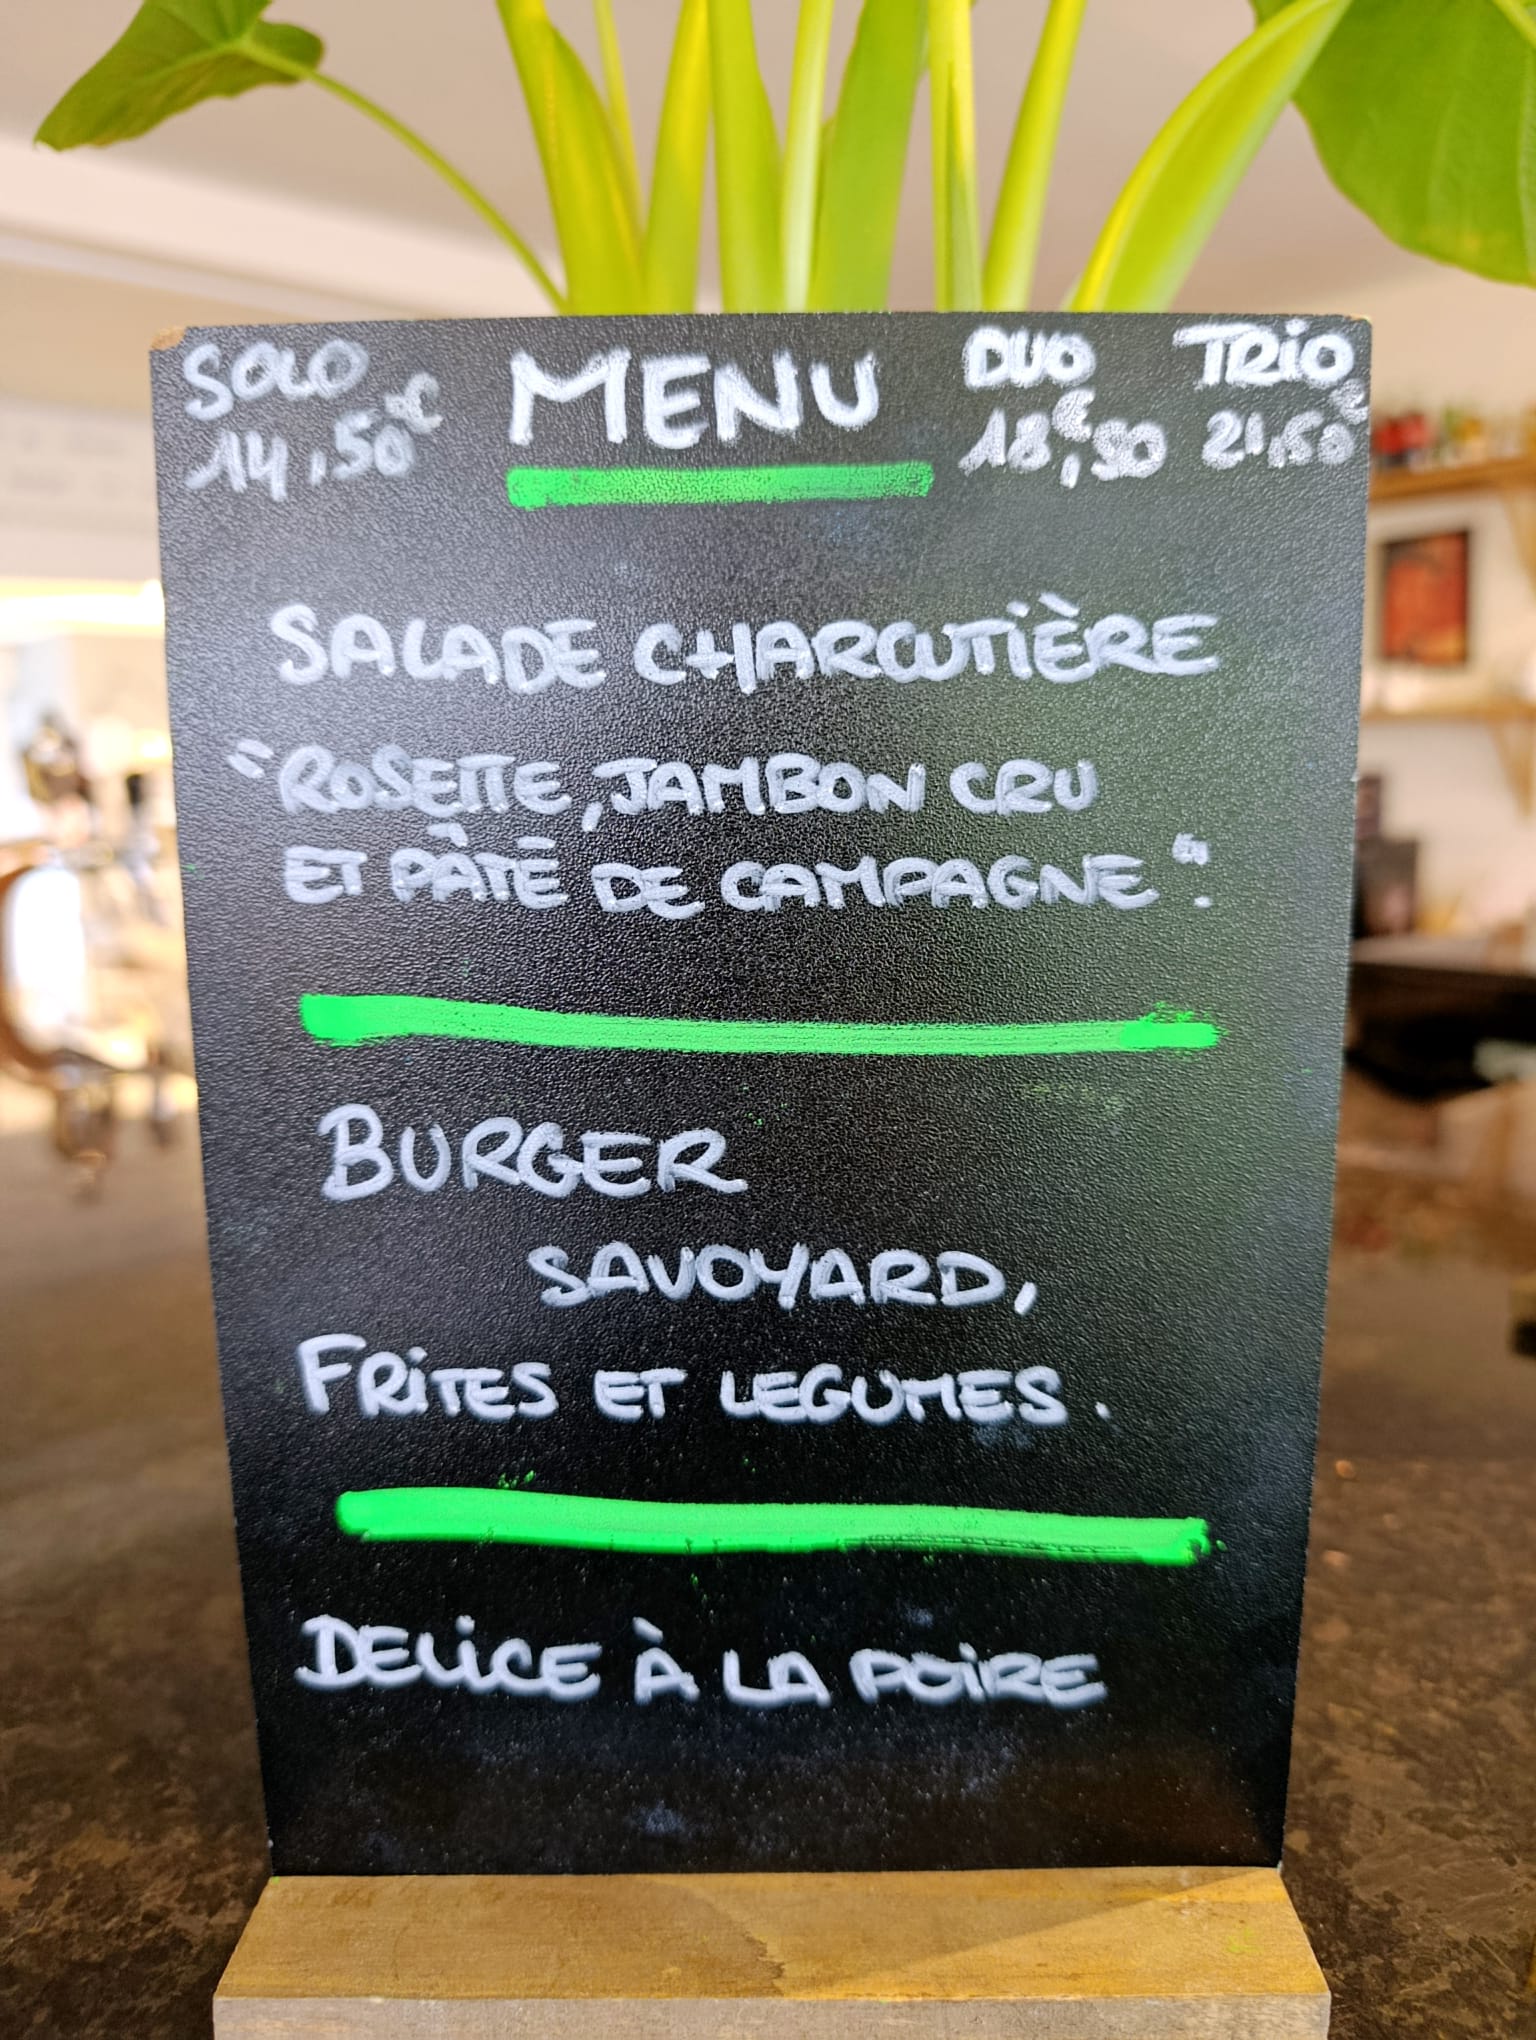 SOLO MENU DUO TRIO
14,50€ 18€,50 21,50€
SALADE CHARCUTIÈRE
"ROSETTE, JAMBON CRU
ET PÂTÉ DE CAMPAGNE".
BURGER
SAVOYARD,
FRITES ET LEGUMES.
DELICE À LA POIRE